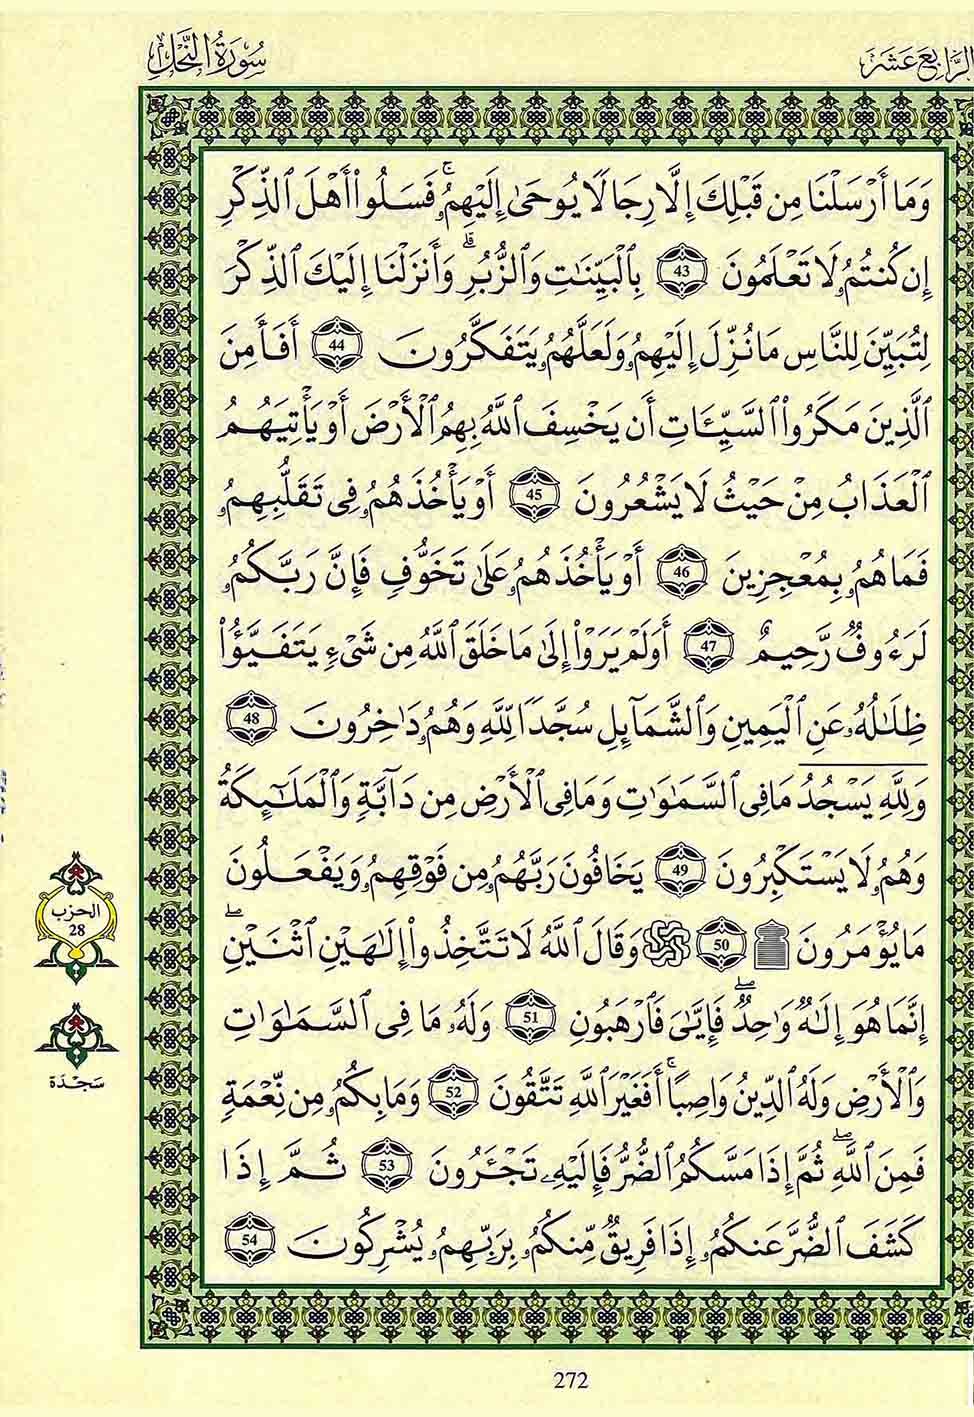 الرَّابِعَ عَشَرَ
سُورَةُ النَّحْلِ
وَمَا أَرْسَلْنَا مِن قَبْلِكَ إِلَّا رِجَالًا يُوحَىٰ إِلَيْهِمُۥ ۚ فَسَلُوا۟ أَهْلَ ٱلذِّكْرِ
إِن كُنتُمُۥ لَا تَعْلَمُونَ 43 بِٱلْبَيِّنَٰتِ وَٱلزُّبُرِ ۗ وَأَنزَلْنَا إِلَيْكَ ٱلذِّكْرَ
لِتُبَيِّنَ لِلنَّاسِ مَا نُزِّلَ إِلَيْهِمُۥ وَلَعَلَّهُمُۥ يَتَفَكَّرُونَ 44 أَفَأَمِنَ
ٱلَّذِينَ مَكَرُوا۟ ٱلسَّيِّـَٔاتِ أَن يَخْسِفَ ٱللَّهُ بِهِمُ ٱلْأَرْضَ أَوْ يَأْتِيَهُمُ
ٱلْعَذَابُ مِنْ حَيْثُ لَا يَشْعُرُونَ 45 أَوْ يَأْخُذَهُمُۥ فِى تَقَلُّبِهِمُۥ
فَمَا هُمُۥ بِمُعْجِزِينَ 46 أَوْ يَأْخُذَهُمُۥ عَلَىٰ تَخَوُّفٍ فَإِنَّ رَبَّكُمُۥ
لَرَءُوفٌ رَّحِيمٌ 47 أَوَلَمْ يَرَوْا۟ إِلَىٰ مَا خَلَقَ ٱللَّهُ مِن شَىْءٍ يَتَفَيَّؤُا۟
ظِلَٰلُهُۥ عَنِ ٱلْيَمِينِ وَٱلشَّمَآئِلِ سُجَّدًا لِلَّهِ وَهُمُۥ دَٰخِرُونَ 48
وَلِلَّهِ يَسْجُدُ مَا فِى ٱلسَّمَٰوَٰتِ وَمَا فِى ٱلْأَرْضِ مِن دَآبَّةٍ وَٱلْمَلَٰٓئِكَةُ
وَهُمُۥ لَا يَسْتَكْبِرُونَ 49 يَخَافُونَ رَبَّهُمُۥ مِن فَوْقِهِمُۥ وَيَفْعَلُونَ
مَا يُؤْمَرُونَ ۩ 50 وَقَالَ ٱللَّهُ لَا تَتَّخِذُوا۟ إِلَٰهَيْنِ ٱثْنَيْنِ ۖ
إِنَّمَا هُوَ إِلَٰهٌ وَٰحِدٌ ۖ فَإِيَّٰىَ فَٱرْهَبُونِ 51 وَلَهُۥ مَا فِى ٱلسَّمَٰوَٰتِ
وَٱلْأَرْضِ وَلَهُ ٱلدِّينُ وَاصِبًا ۚ أَفَغَيْرَ ٱللَّهِ تَتَّقُونَ 52 وَمَا بِكُمُۥ مِن نِّعْمَةٍ
فَمِنَ ٱللَّهِ ۖ ثُمَّ إِذَا مَسَّكُمُ ٱلضُّرُّ فَإِلَيْهِۦ تَجْـَٔرُونَ 53 ثُمَّ إِذَا
كَشَفَ ٱلضُّرَّ عَنكُمُۥ إِذَا فَرِيقٌ مِّنكُمُۥ بِرَبِّهِمُۥ يُشْرِكُونَ 54
الحزب
28
سَجْدَة
272